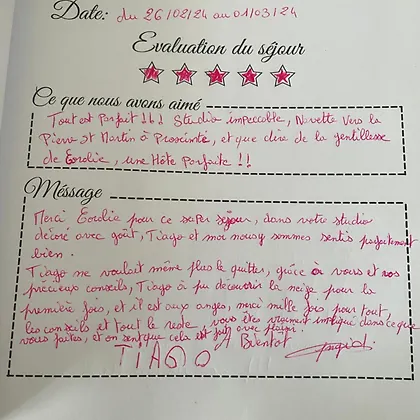 Date: du 26/02/24 au 01/03/24
Evaluation du séjour
Ce que nous avons aimé
Tout est Parfait !!! Studio impeccable, Navette vers la
Pierre St Martin à Proximité, et que dire de la gentillesse
de Eordie, une Hôte Parfaite !!
Méssage
Merci Eordie pour ce super séjour, dans votre studio
décoré avec goût, Tiago et moi nousy sommes sentis parfaitement
bien.
Tiago me voulait même plus le quitter, grâce à vous et nos
précieux conseils, Tiago à pu découvrir la neige pour la
première fois, et il est aux anges, merci mille fois pour tout,
les conseils et tout le reste vous êtes vraiment impliqué dans ce que
vous faites, et on sent que cela est fait avec plaisir.
A Bientot
TIAGO